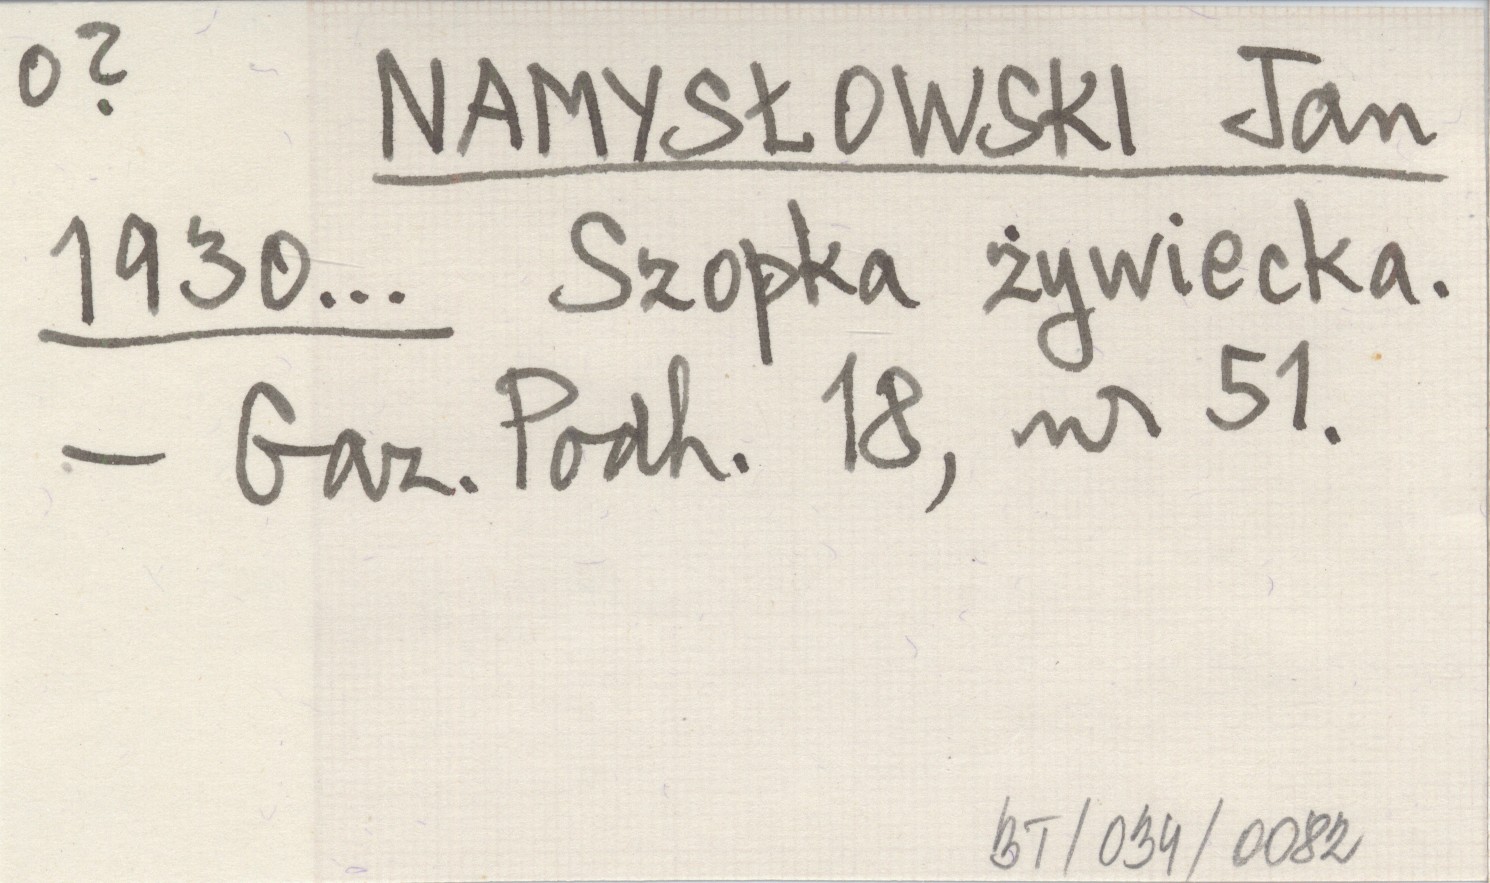 o?
NAMYSŁOWSKI Jan
1930... Szopka żywiecka.
— Gaz. Podh. 18, nr 51.
BT/034/0082